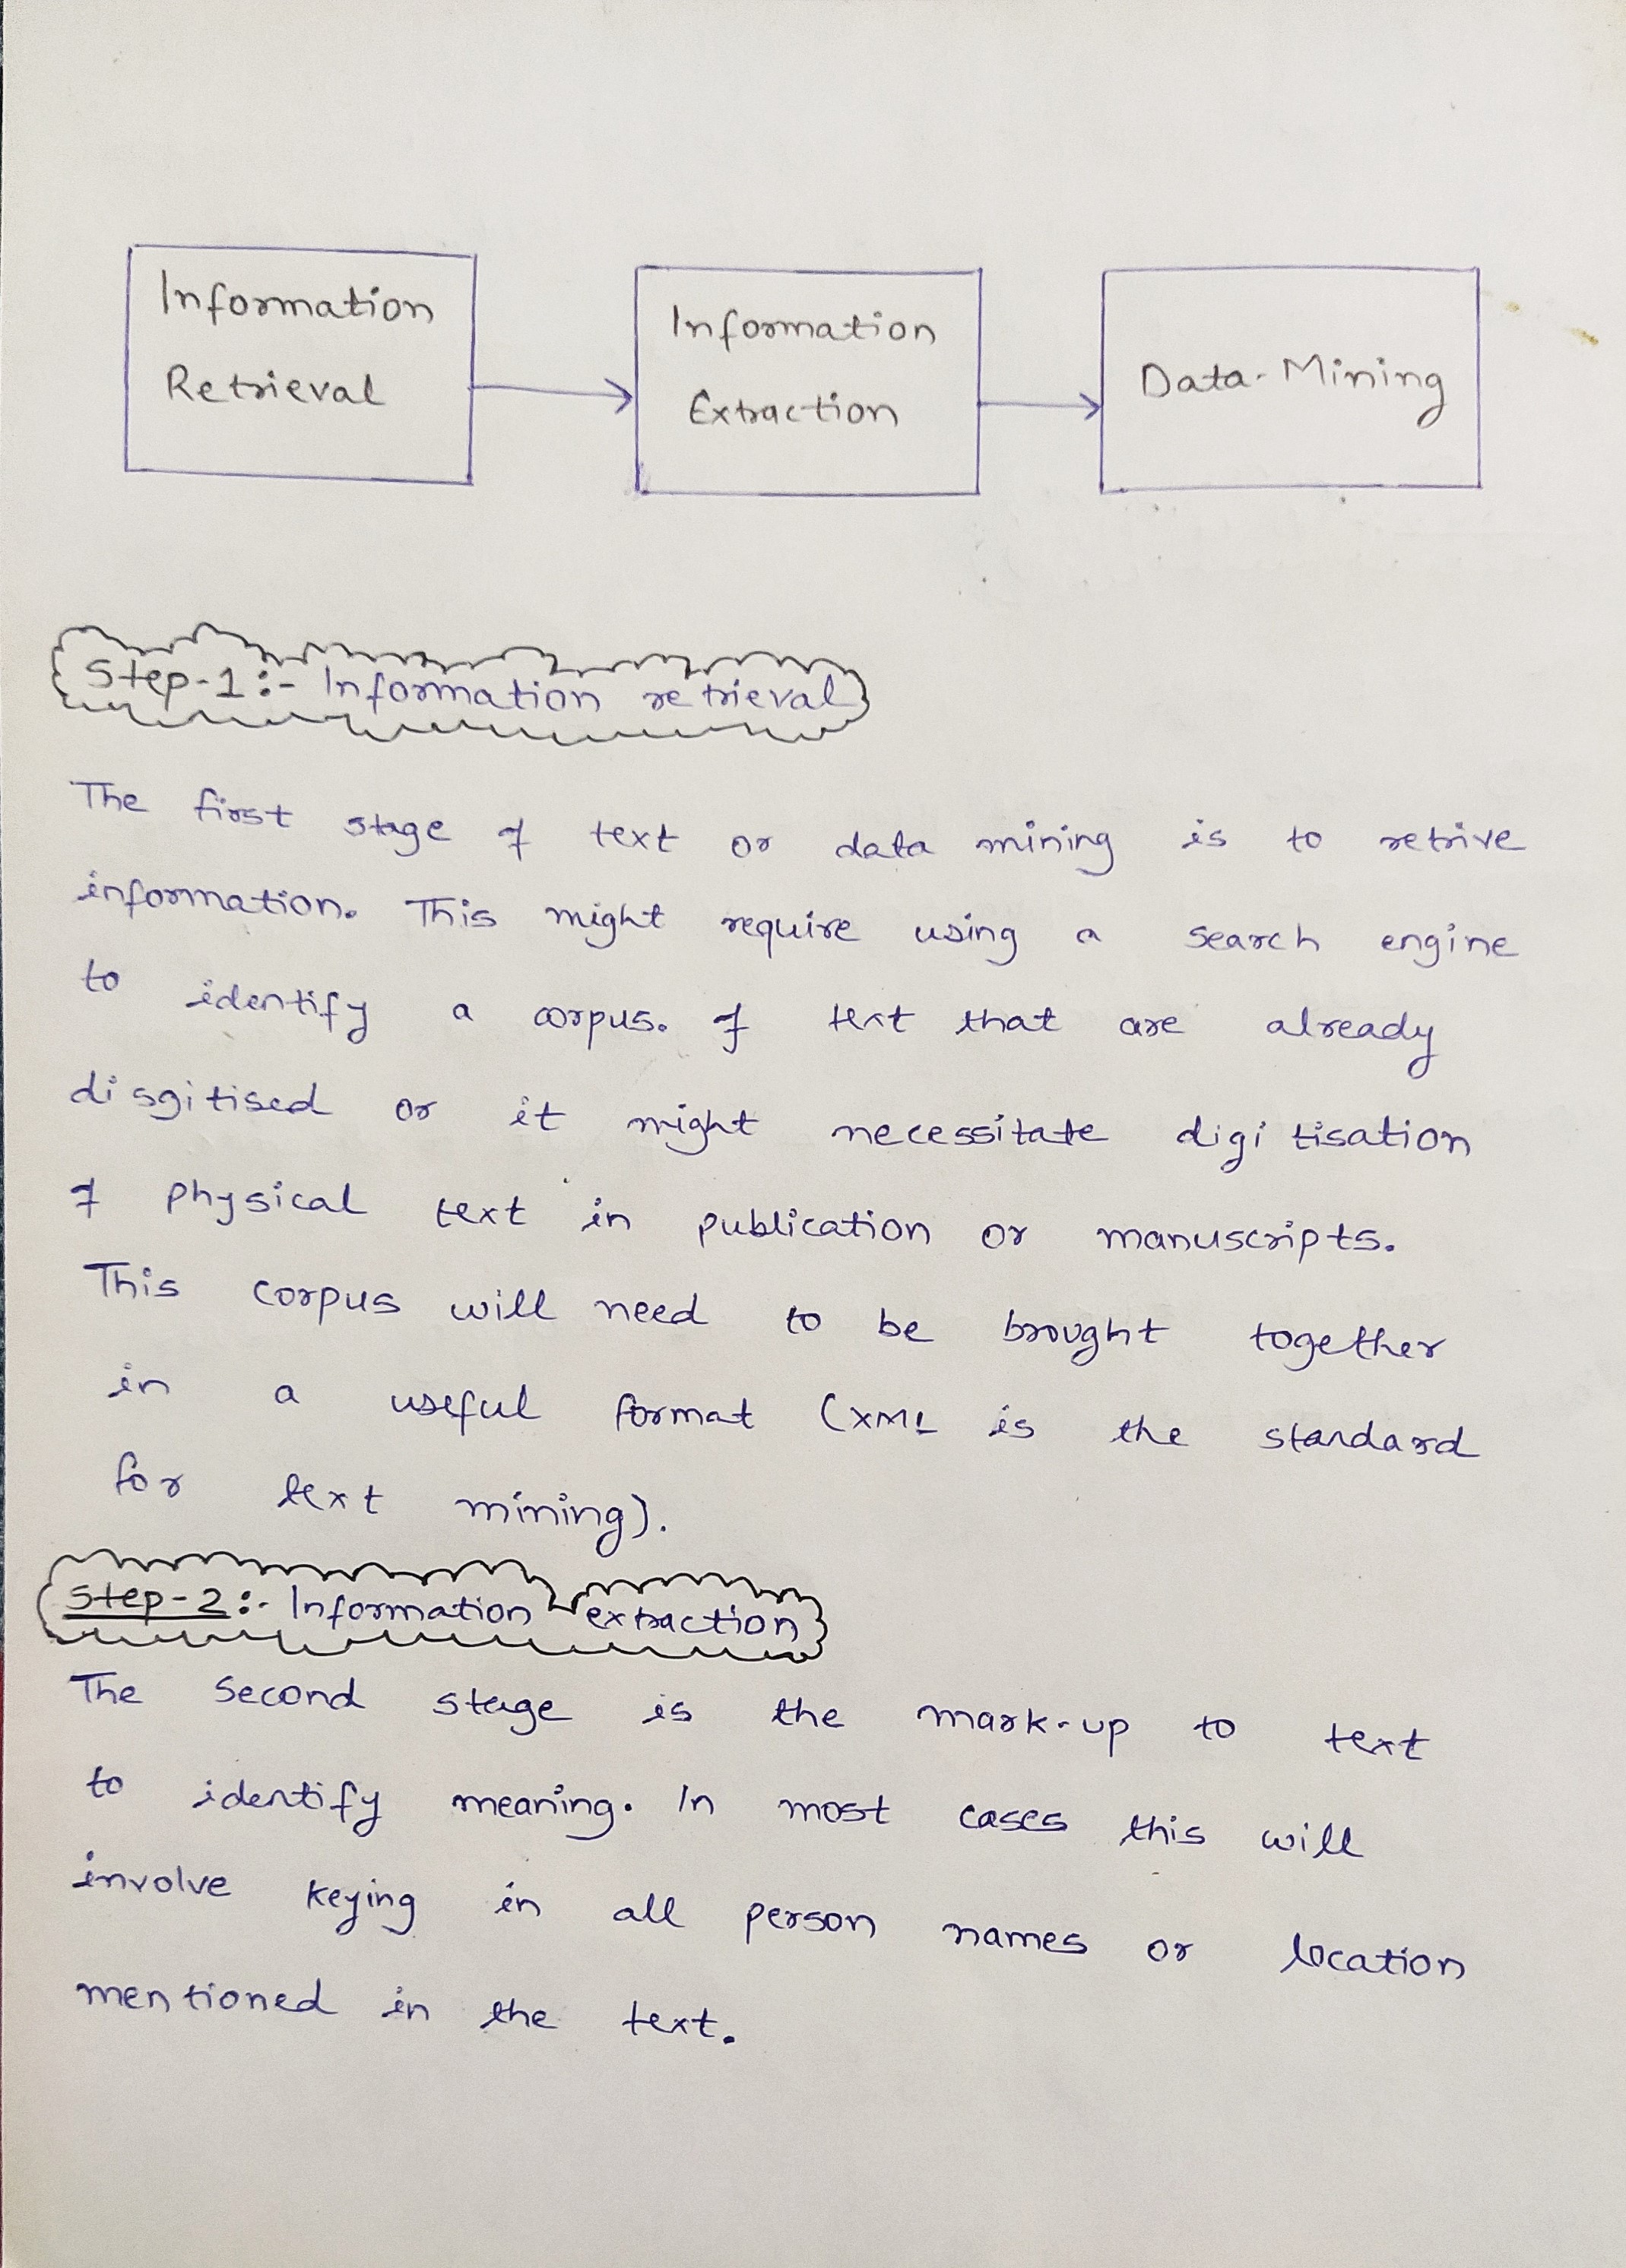 Information
Retrieval
Information
Extraction
Data-Mining
Step-1:- Information retrieval
The first stage of text or data mining is to retrive
information. This might require using a search engine
to identify a corpus. of text that are already
disgitised or it might necessitate digitisation
of physical text in publication or manuscripts.
This corpus will need to be brought together
in a useful format (XML is the standard
for text mining).
Step-2:- Information extraction
The second stage is the mark-up to text
to identify meaning. In most cases this will
involve keying in all person names or location
mentioned in the text.